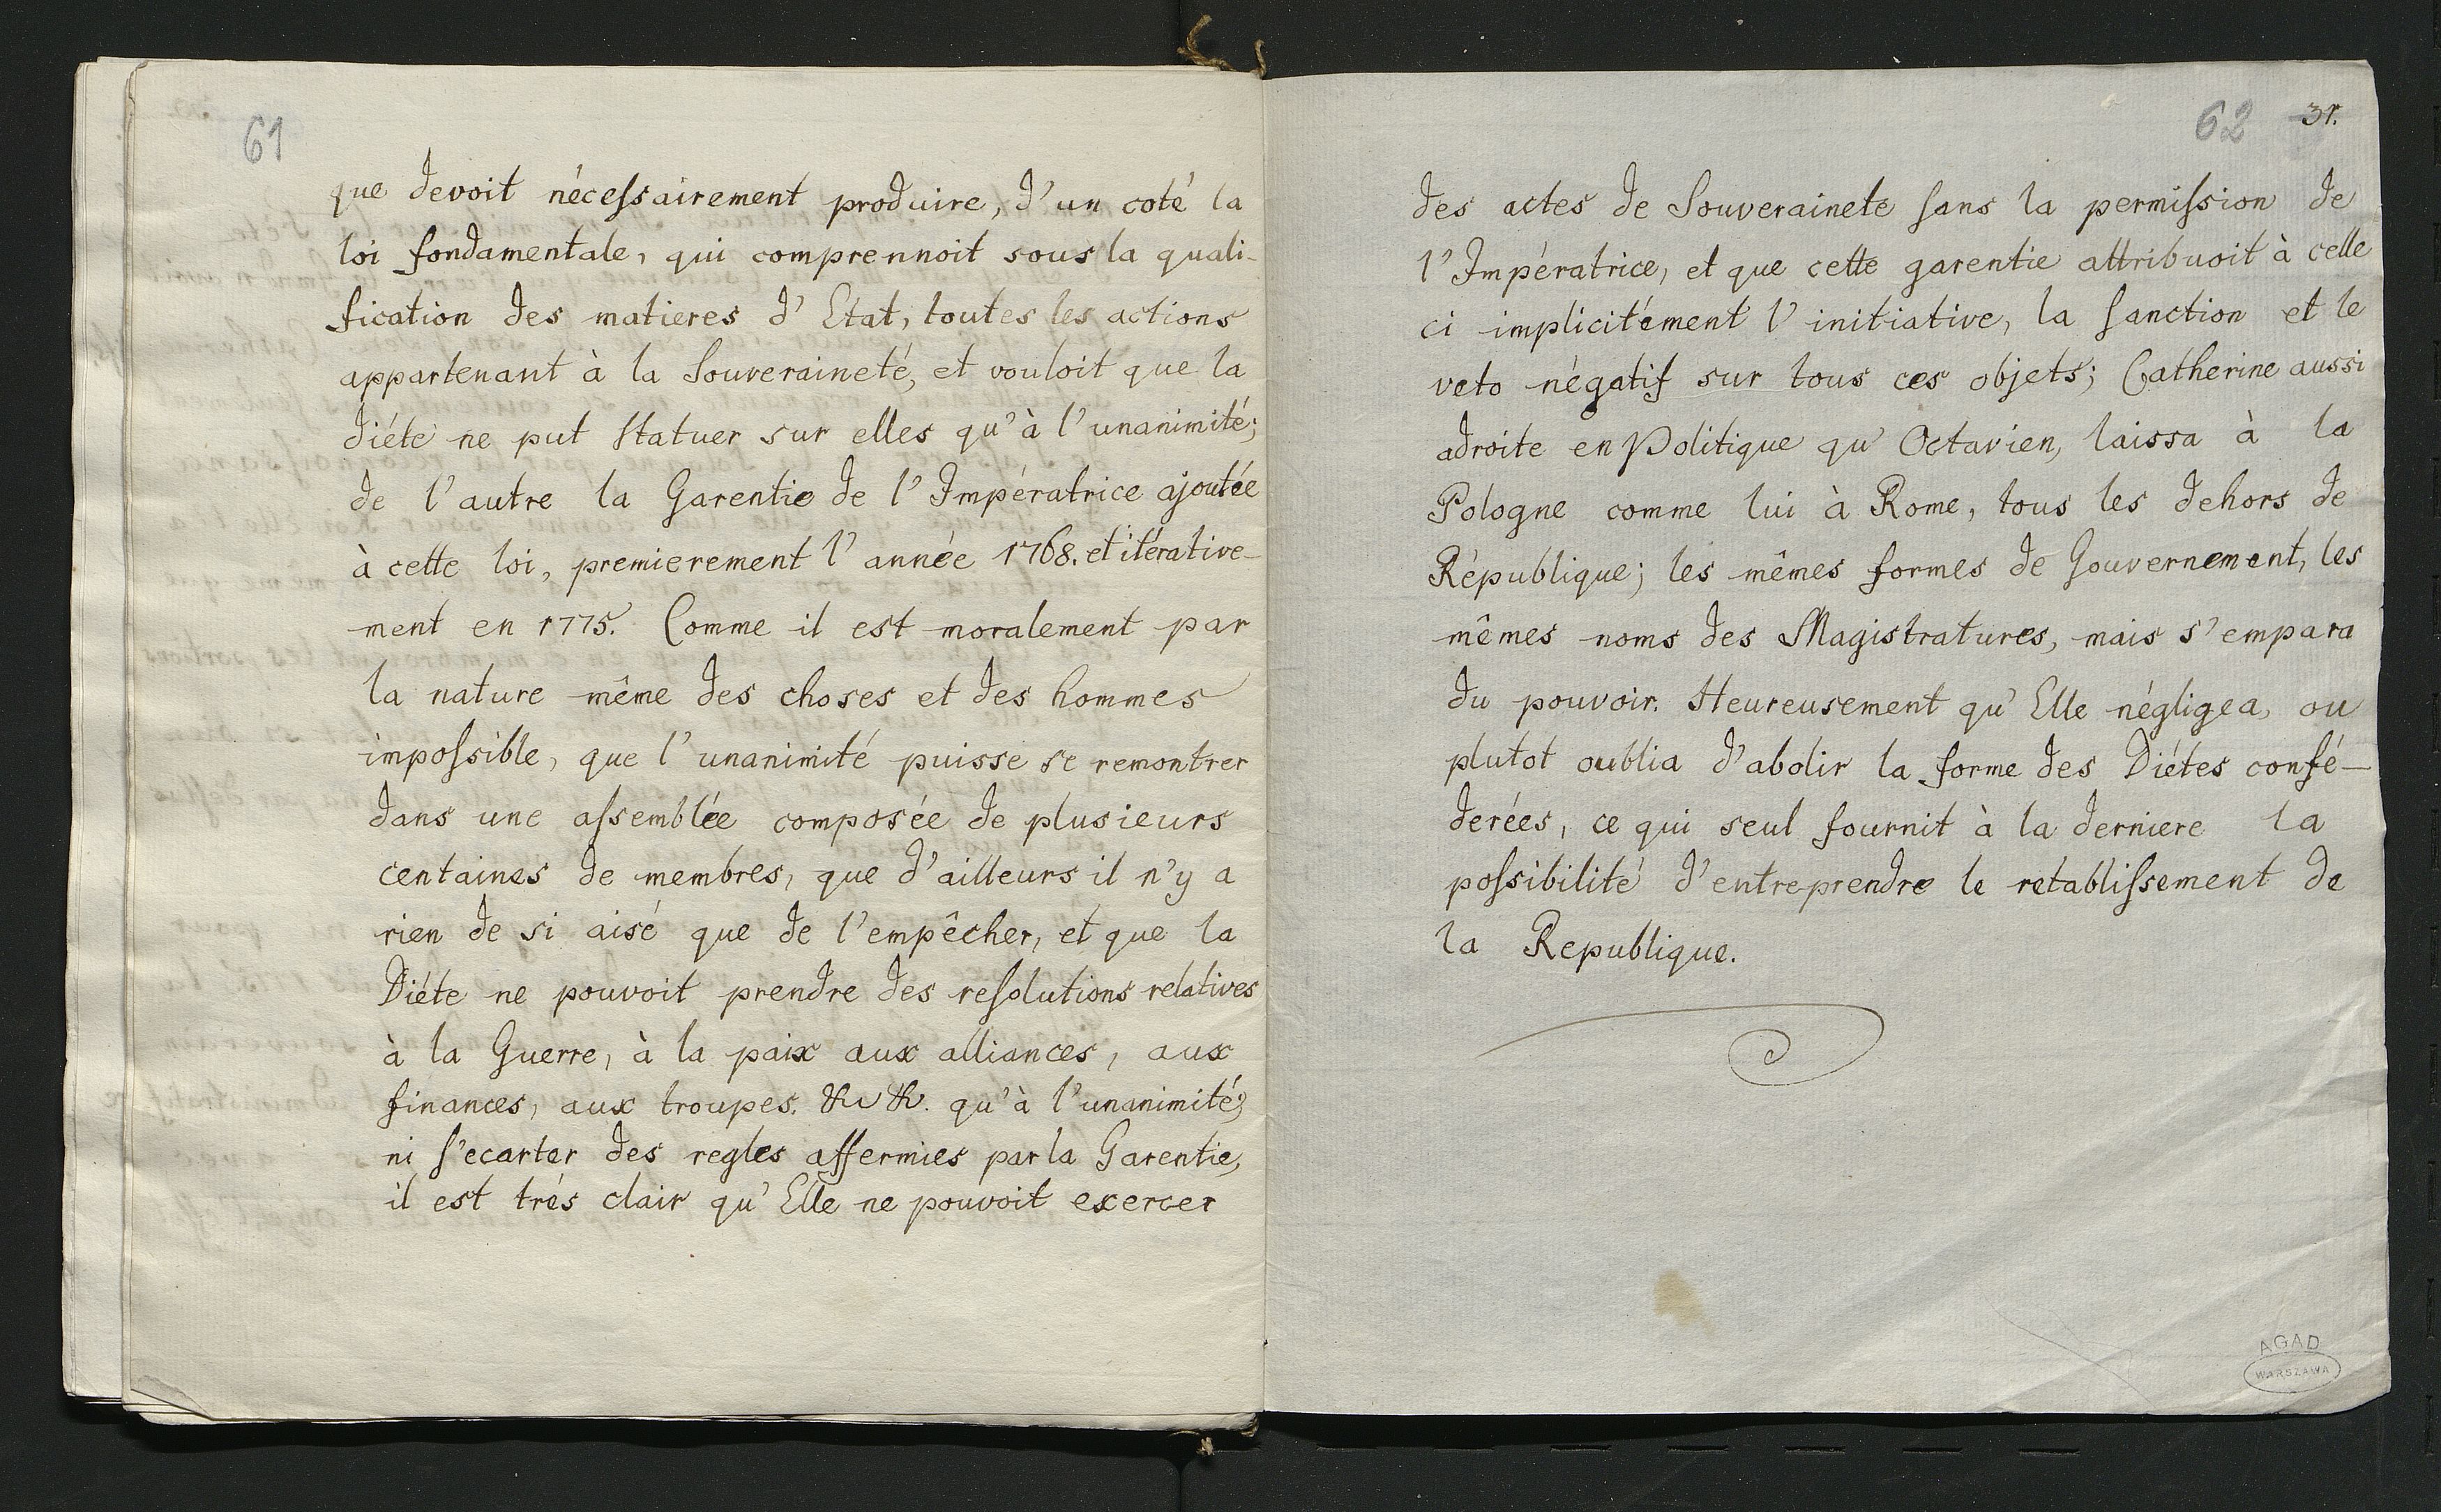 61
que devoit nécessairement produire, d'un coté la
loi fondamentale, qui comprennoit sous la quali-
fication des matieres d'Etat, toutes les actions
appartenant à la Souveraineté, et vouloit que la
diéte ne put statuer sur elles qu'à l'unanimité;
de l'autre la Garentie de l'Impératrice ajoutée
à cette loi, premierement l'année 1768. et itérative-
ment en 1775. Comme il est moralement par
la nature même des choses et des hommes
impossible, que l'unanimité puisse se remontrer
dans une assemblée composée de plusieurs
centaines de membres, que d'ailleurs il n'y a
rien de si aisé que de l'empêcher, et que la
Diéte ne pouvoit prendre des resolutions relatives
à la Guerre, à la paix aux alliances, aux
finances, aux troupes. &c &c. qu'à l'unanimité;
ni s'ecarter des regles affermies par la Garentie,
il est trés clair qu'Elle ne pouvoit exercer
62 31.
des actes de Souverainete sans la permission de
l'Impératrice, et que cette garentie attribuoit à celle
ci implicitément l'initiative, la sanction et le
veto négatif sur tous ces objets; Catherine aussi
adroite en Politique qu'Octavien, laissa à la
Pologne comme lui à Rome, tous les dehors de
République; les mêmes formes de Gouvernement, les
mêmes noms des Magistratures, mais s'empara
du pouvoir. Heureusement qu'Elle négligea, ou
plutot oublia d'abolir la forme des Diétes confé-
derées, ce qui seul fournit à la derniere la
possibilité d'entreprendre le retablissement de
la Republique.
AGAD
WARSZAWA